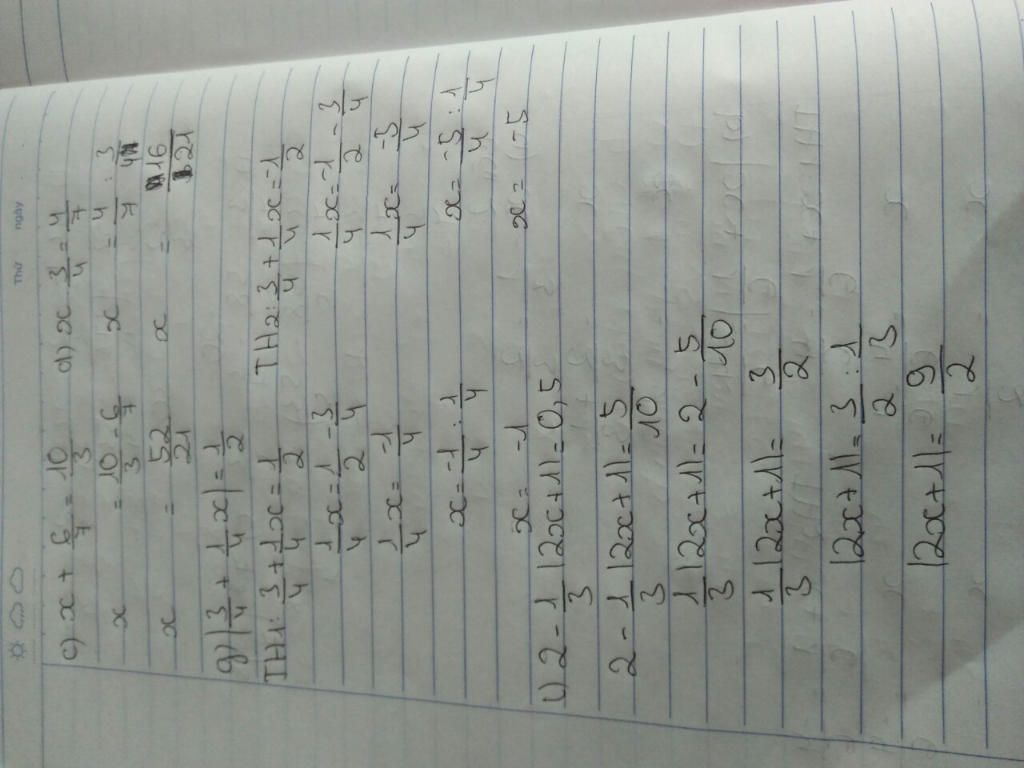 Thứ ngày
c) x + 6/7 = 10/3 d) x 3/4 = 4/7
x = 10/3 - 6/7 x = 4/7 : 3/4
x = 52/21 x = 16/21
g) |3/4 + 1/4 x| = 1/2
TH1: 3/4 + 1/4 x = 1/2 TH2: 3/4 + 1/4 x = -1/2
1/4 x = 1/2 - 3/4 1/4 x = -1/2 - 3/4
1/4 x = -1/4 1/4 x = -5/4
x = -1/4 : 1/4 x = -5/4 : 1/4
x = -1 x = -5
i) 2 - 1/3 |2x+1| = 0,5
2 - 1/3 |2x+1| = 5/10
1/3 |2x+1| = 2 - 5/10
1/3 |2x+1| = 3/2
|2x+1| = 3/2 : 1/3
|2x+1| = 9/2